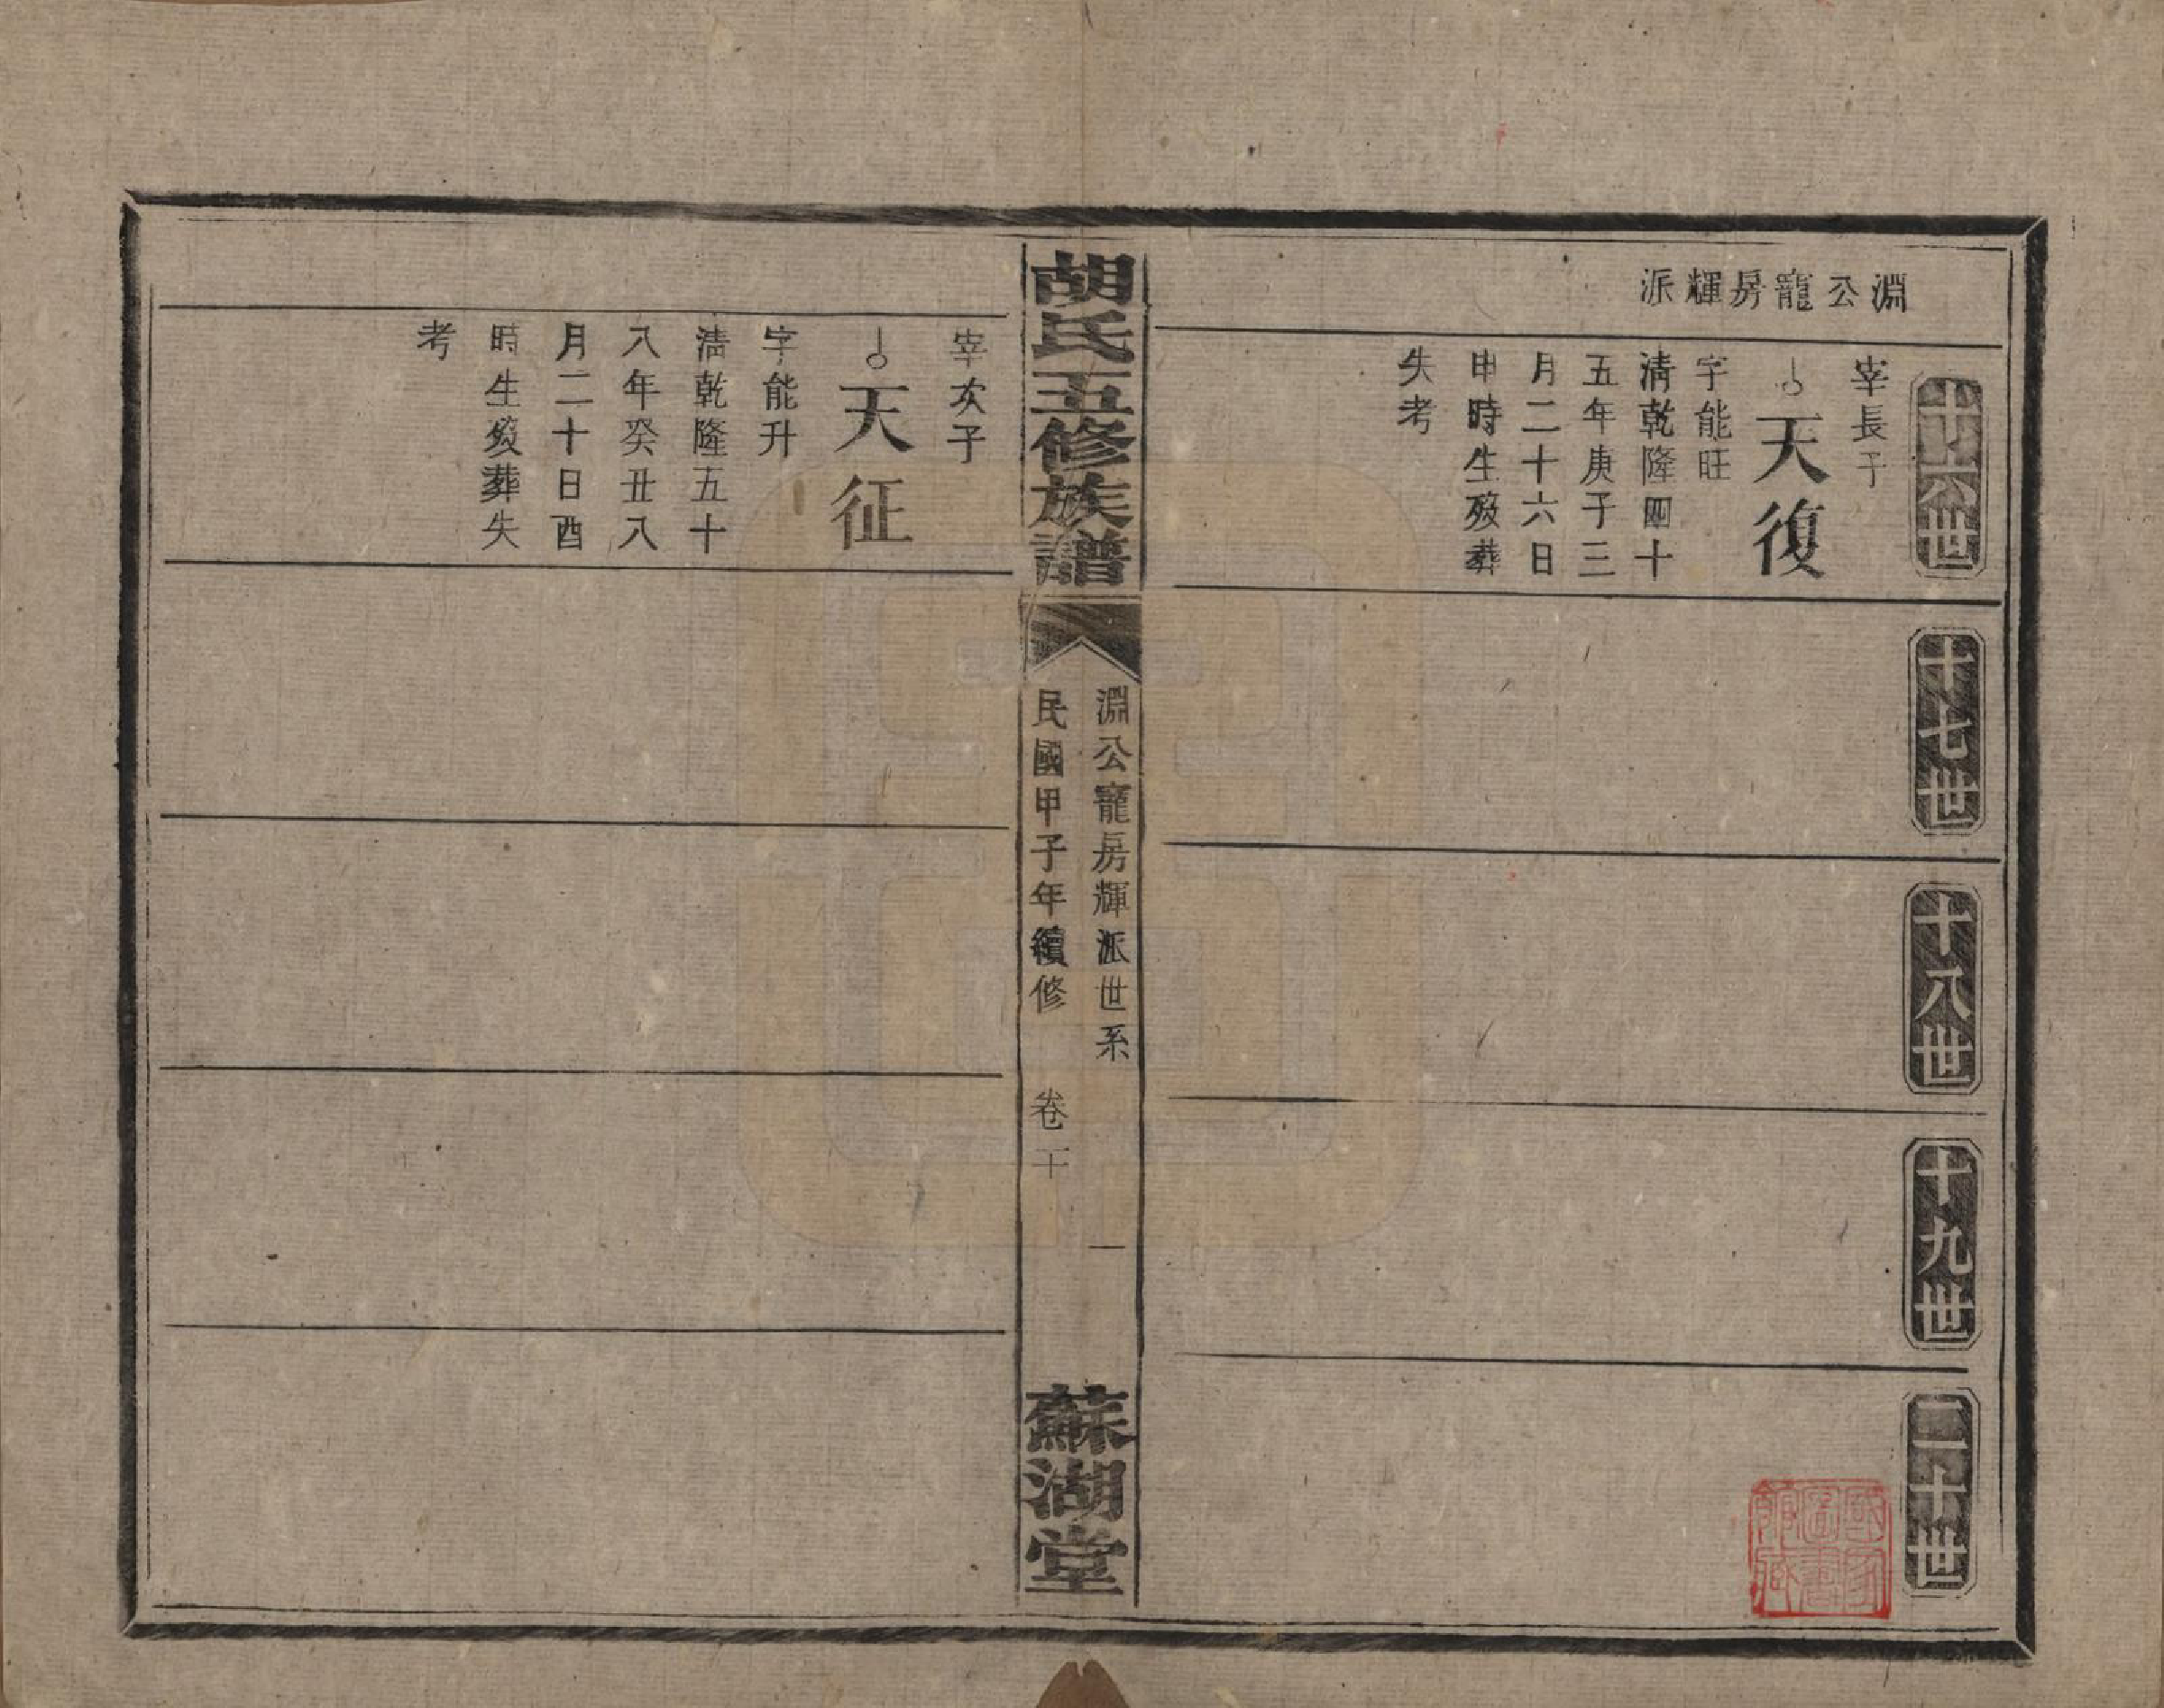 淵公寵房輝派
十六世
十七世
十八世
十九世
二十世
宰長子
天復
字能旺
清乾隆四十
五年庚子三
月二十六日
申時生歿葬
失考
胡氏五修族譜
淵公寵房輝派世系
一
民國甲子年續修
卷十
蘇湖堂
宰次子
天征
字能升
清乾隆五十
八年癸丑八
月二十日酉
時生歿葬失
考
國家
圖書
館藏